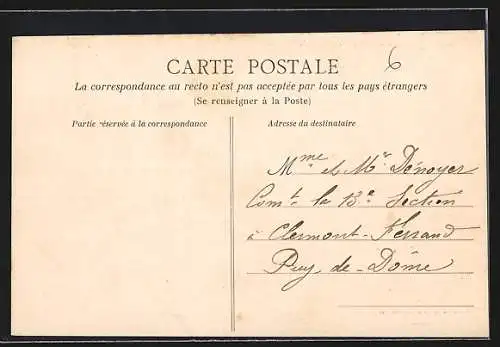 CARTE POSTALE
6
La correspondance au recto n'est pas acceptée par tous les pays étrangers
(Se renseigner à la Poste)
Partie réservée à la correspondance
Adresse du destinataire
Mme et Mr Dénoyer
Comt la 13e Section
à Clermont-Ferrand
Puy-de-Dôme